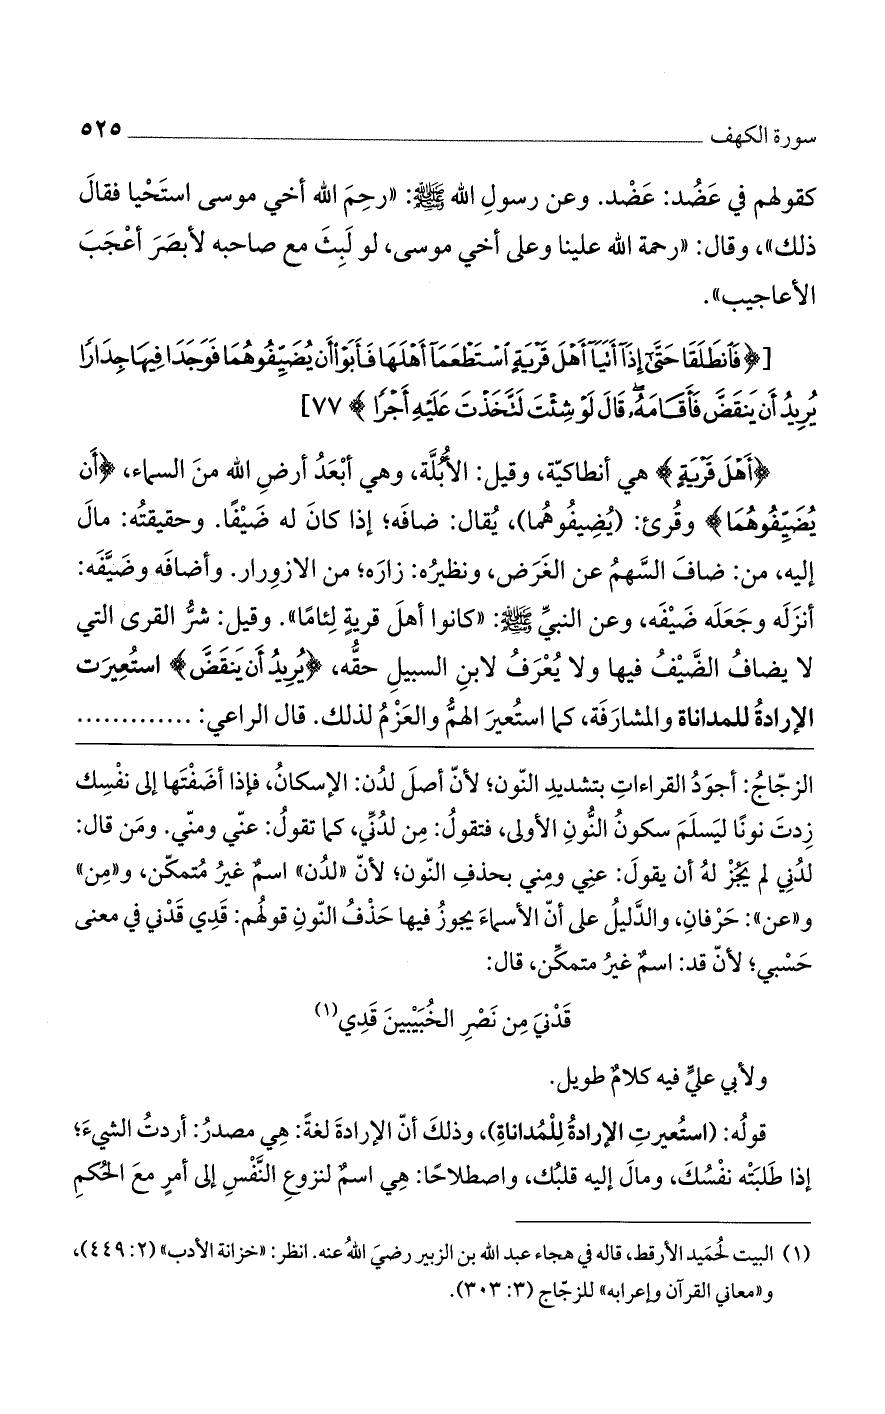 سورة الكهف ٥٢٥
كقولهم في عَضُد: عَضْد. وعن رسولِ الله ﷺ: «رحِمَ الله أخي موسى استَحْيا فقالَ
ذلك»، وقال: «رحمة الله علينا وعلى أخي موسى، لو لَبِثَ مع صاحبه لأبصَرَ أعْجَبَ
الأعاجيب».
[﴿فَٱنطَلَقَا حَتَّىٰٓ إِذَآ أَتَيَآ أَهْلَ قَرْيَةٍ ٱسْتَطْعَمَآ أَهْلَهَا فَأَبَوْا۟ أَن يُضَيِّفُوهُمَا فَوَجَدَا فِيهَا جِدَارًا
يُرِيدُ أَن يَنقَضَّ فَأَقَامَهُۥ ۖ قَالَ لَوْ شِئْتَ لَتَّخَذْتَ عَلَيْهِ أَجْرًا﴾ ٧٧]
﴿أَهْلَ قَرْيَةٍ﴾ هي أنطاكيّة، وقيل: الأُبُلَّة، وهي أبْعَدُ أرضِ الله منَ السماء، ﴿أَن
يُضَيِّفُوهُمَا﴾ وقُرئ: (يُضِيفُوهُما)، يُقال: ضافَه؛ إذا كانَ له ضَيْفًا. وحقيقتُه: مالَ
إليه، من: ضافَ السَّهمُ عن الغَرَض، ونظيرُه: زارَه؛ من الازورار. وأضافَه وضَيَّفَه:
أنزَلَه وجَعَلَه ضَيْفَه، وعن النبيِّ ﷺ: «كانوا أهلَ قريةٍ لِئامًا». وقيل: شرُّ القرى التي
لا يضافُ الضَّيْفُ فيها ولا يُعْرَفُ لابنِ السبيلِ حقُّه، ﴿يُرِيدُ أَن يَنقَضَّ﴾ استُعِيرَت
الإرادةُ للمداناة والمشارَفَة، كما استُعيرَ الهمُّ والعَزْمُ لذلك. قال الراعي: .............
الزجّاجُ: أجوَدُ القراءاتِ بتشديدِ النّون؛ لأنّ أصلَ لدُن: الإسكانُ، فإذا أضَفْتَها إلى نفْسِك
زِدتَ نونًا ليَسلَمَ سكونُ النُّونِ الأولى، فتقولُ: مِن لدُنِّي، كما تقولُ: عنّي ومنّي. ومَن قال:
لدُنِي لم يَجُزْ لهُ أن يقولَ: عنِي ومِني بحذفِ النّون؛ لأنّ «لدُن» اسمٌ غيرُ مُتمكّن، و«مِن»
و«عن»: حَرْفانِ، والدَّليلُ على أنّ الأسماءَ يجوزُ فيها حَذْفُ النّونِ قولُهم: قَدِي قَدْني في معنى
حَسْبي؛ لأنّ قد: اسمٌ غيرُ متمكِّن، قال:
قَدْنيَ مِن نَصْرِ الخُبَيْبينَ قَدِي(١)
ولأبي عليٍّ فيه كلامٌ طويل.
قولُه: (استُعيرتِ الإرادةُ لِلْمُداناةِ)، وذلكَ أنّ الإرادةَ لغةً: هي مصدرُ: أردتُ الشيءَ؛
إذا طَلَبَتْه نفْسُكَ، ومالَ إليه قلبُك، واصطلاحًا: هِي اسمٌ لنزوعِ النَّفْسِ إلى أمرٍ معَ الحُكمِ
(١) البيت لحُمَيد الأرقط، قاله في هجاء عبد الله بن الزبير رضيَ اللهُ عنه. انظر: «خزانة الأدب» (٢: ٤٤٩)،
و«معاني القرآن وإعرابه» للزجّاج (٣: ٣٠٣).